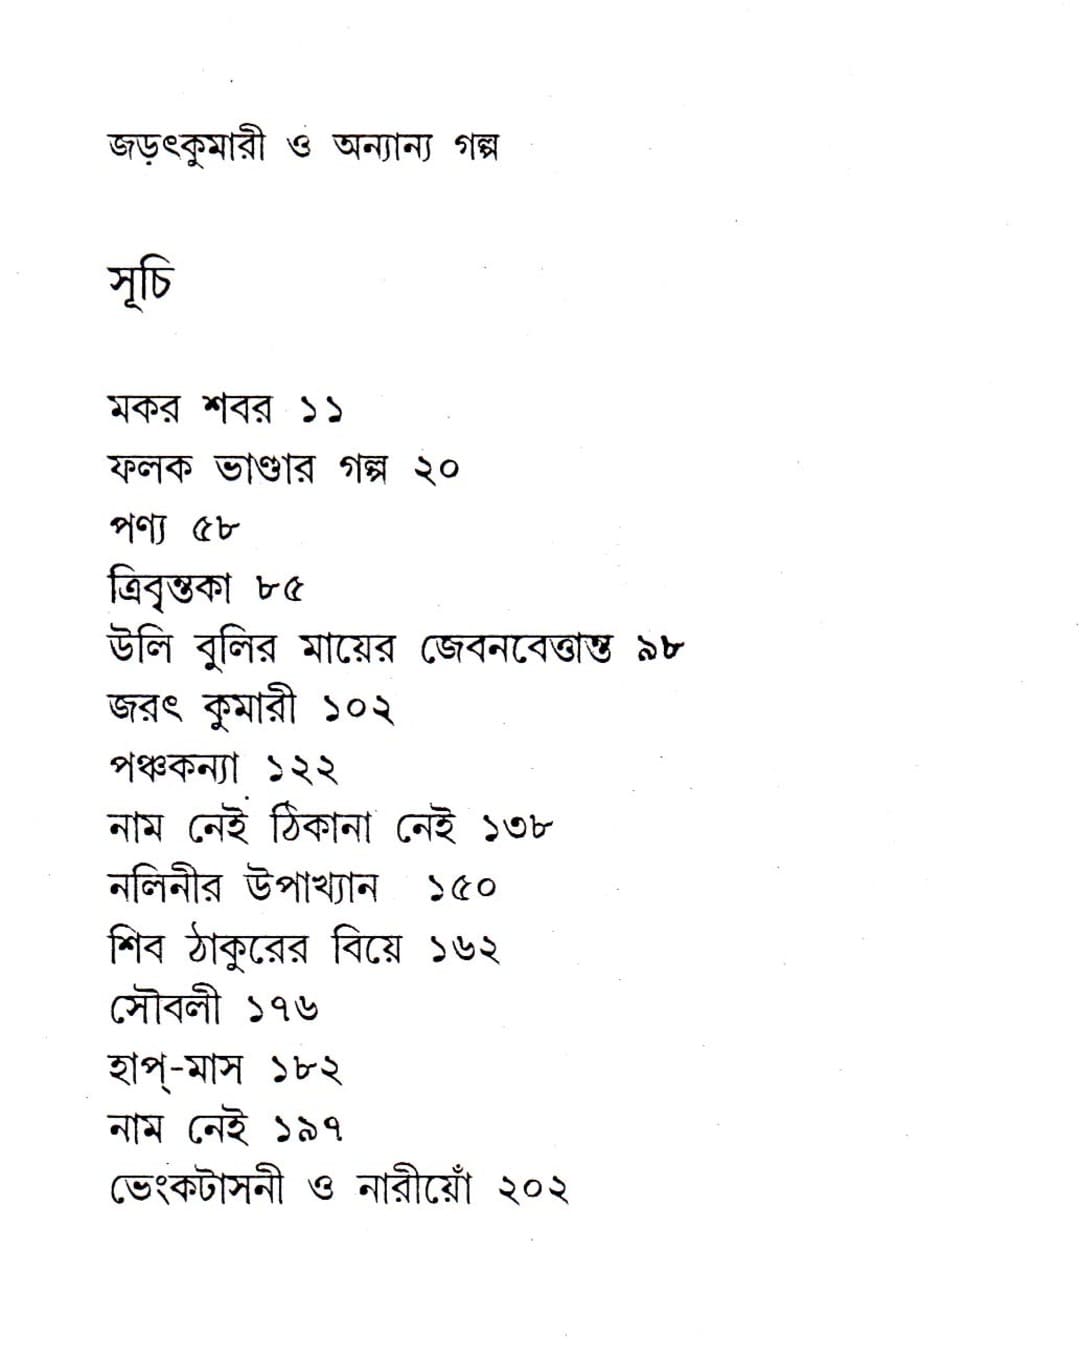 জড়ৎকুমারী ও অন্যান্য গল্প
সূচি
মকর শবর ১১
ফলক ভাণ্ডার গল্প ২০
পণ্য ৫৮
ত্রিবৃন্তকা ৮৫
উলি বুলির মায়ের জেবনবেত্তান্ত ৯৮
জরৎ কুমারী ১০২
পঞ্চকন্যা ১২২
নাম নেই ঠিকানা নেই ১৩৮
নলিনীর উপাখ্যান ১৫০
শিব ঠাকুরের বিয়ে ১৬২
সৌবলী ১৭৬
হাপ্-মাস ১৮২
নাম নেই ১৯৭
ভেংকটাসনী ও নারীয়োঁ ২০২